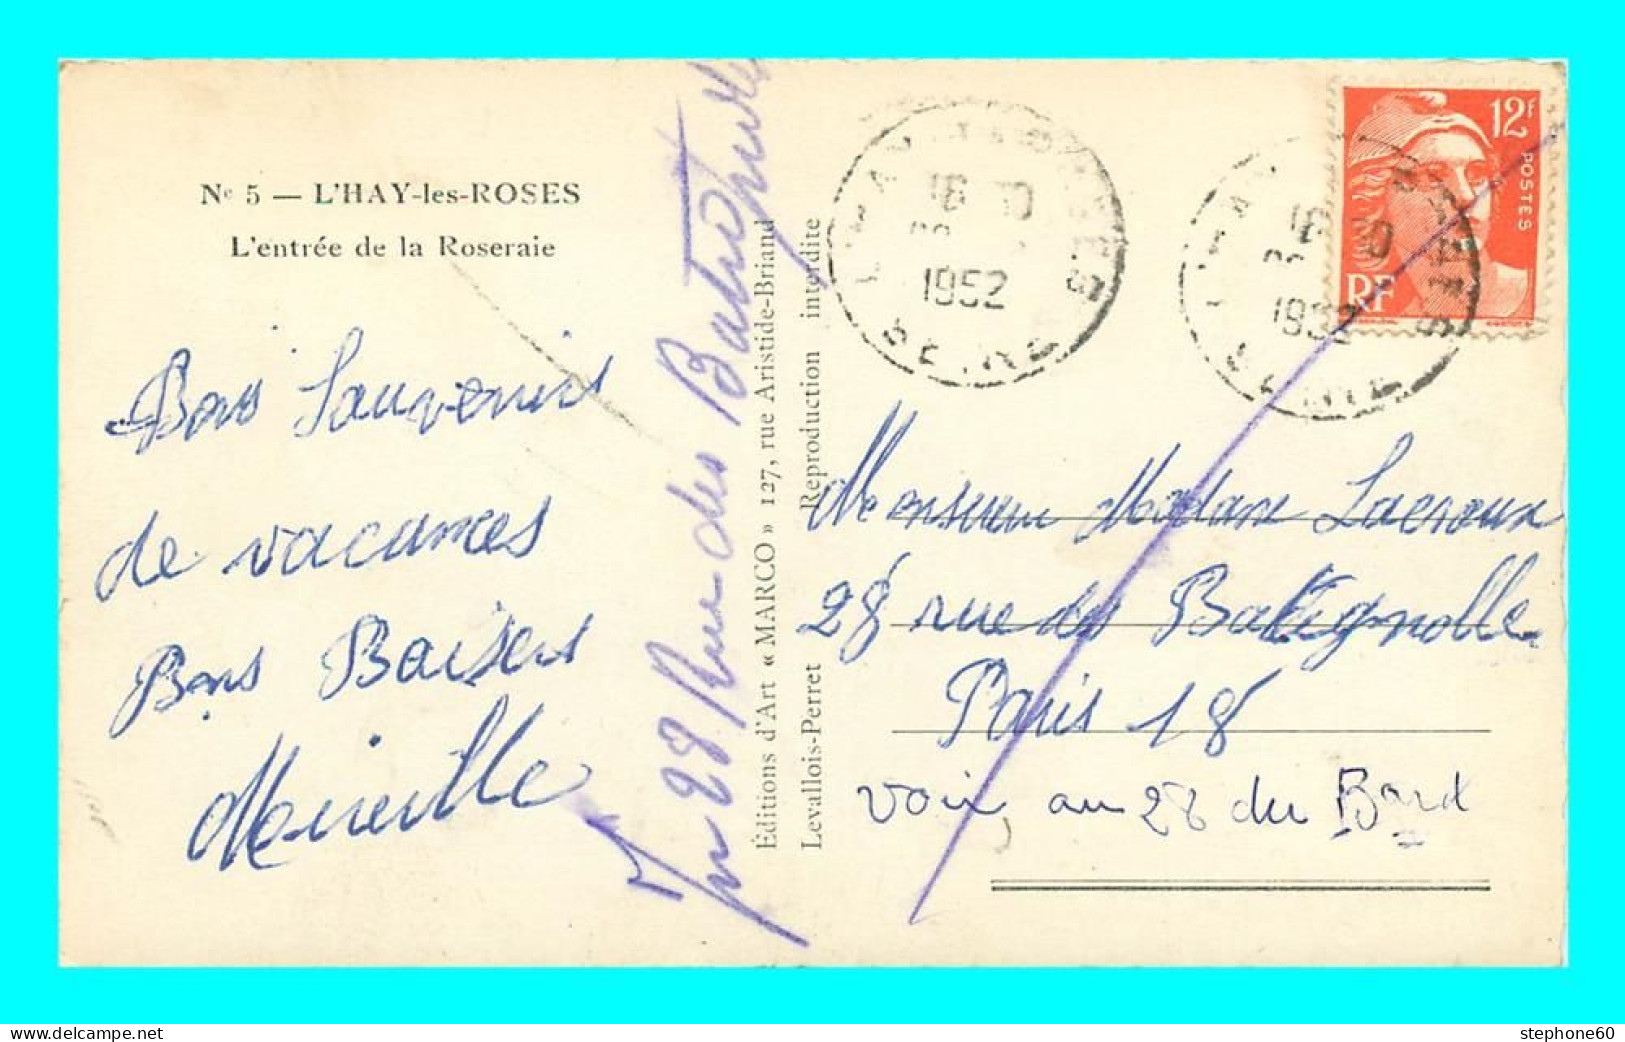 Nº 5 — L'HAY-les-ROSES
L'entrée de la Roseraie
Bons Souvenirs
de vacances
Bons Baisers
Mireille
28 Rue des
Éditions d'Art « MARCO » 127, rue Aristide-Briand
Levallois-Perret Reproduction interdite
1952
SEINE
1952
12F
POSTES
RF
Monsieur Madame Lacroux
28 rue des Batignolle
Paris 18
voir au 28 du Bard
www.delcampe.net
stephone60